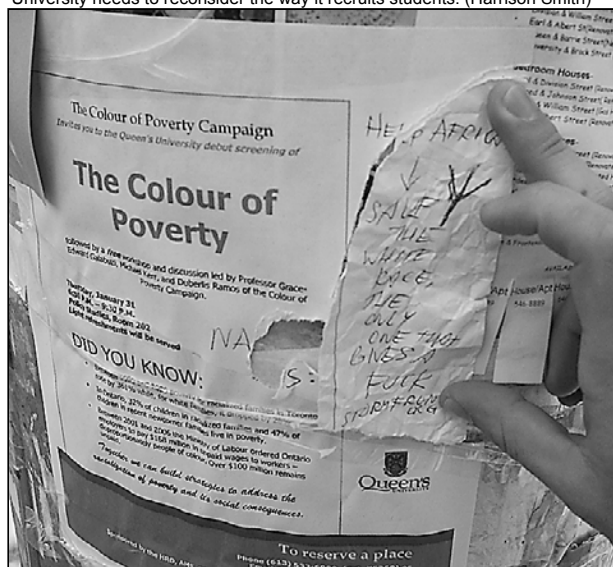 University needs to reconsider the way it recruits students. (Harrison Smith)
The Colour of Poverty Campaign
Invites you to the Queen's University debut screening of
The Colour of
Poverty
followed by a free workshop and discussion led by Professor Grace-
Edward Galabuzi, Michael Kerr, and Duberlis Ramos of the Colour of
Poverty Campaign.
Thursday, January 31
P.M. – 9:30 P.M.
Policy Studies, Room 202
Light refreshments will be served
NA
S:
DID YOU KNOW:
racialized families in Toronto
rose by 361% while, for white families, is
In Ontario, 32% of children in racialized families and 47% of
children in recent newcomer families live in poverty.
Between 2001 and 2006 the Ministry of Labour ordered Ontario
employers to pay $168 million in unpaid wages to workers –
disproportionately people of colour. Over $100 million remains
Together we can build strategies to address the
racialization of poverty and its social consequences.
Queen's
UNIVERSITY
To reserve a place
Sponsored by the HRO, AMS
Phone (613) 533
HELP AFRICA
↓
SAVE
THE
WHITE
RACE,
THE
ONLY
ONE THAT
GIVES A
FUCK
STORMFRONT
ORG
& William Street
Earl & Albert St
Jean & Barrie Street
University & Brock Street
room Houses-
& Division Street
& Johnson Street
& William Street
bert Street
Apt House/Apt Hou
546-8889